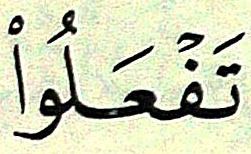 تَفۡعَلُواْ